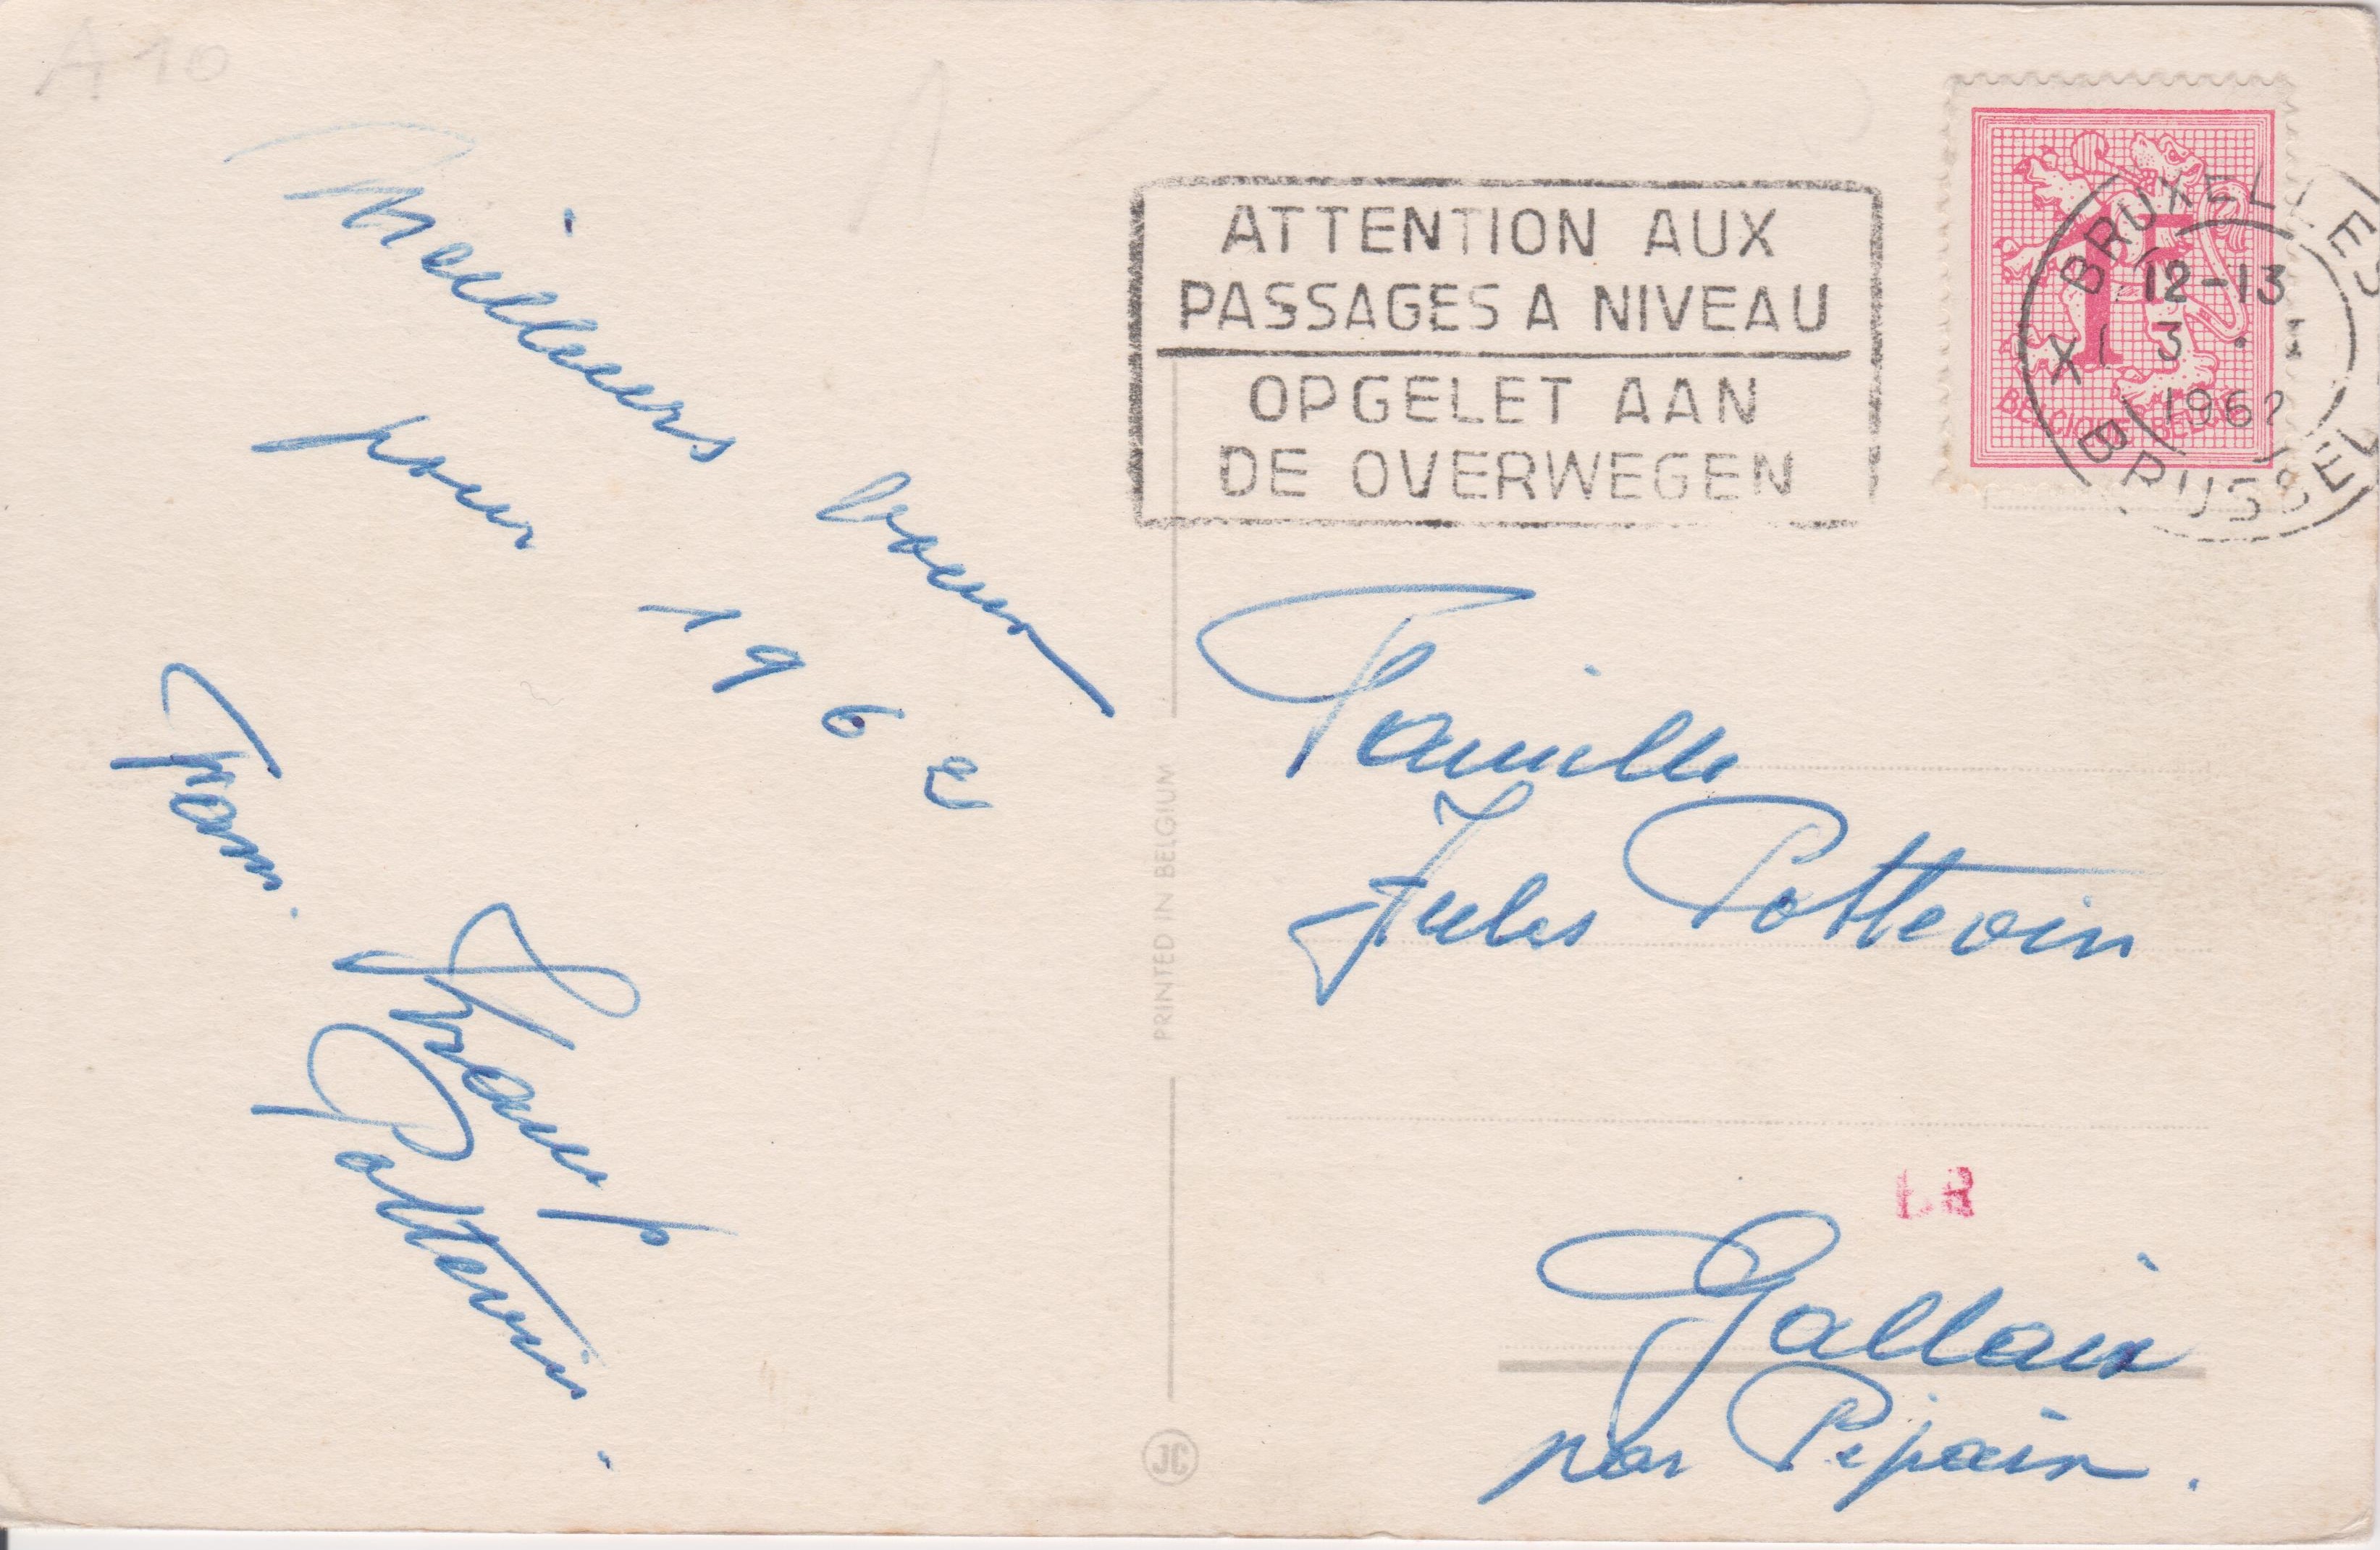 A 10
Meilleurs voeux
pour 1962
Fam.
Pottevin.
ATTENTION AUX
PASSAGES A NIVEAU
OPGELET AAN
DE OVERWEGEN
BRUXELLES X BRUSSEL X
12-13
3
1962
1F
BELGIE-BELGIQUE
PRINTED IN BELGIUM
JC
Famille
Jules Pottevin
Gallaix
par Pipaix.